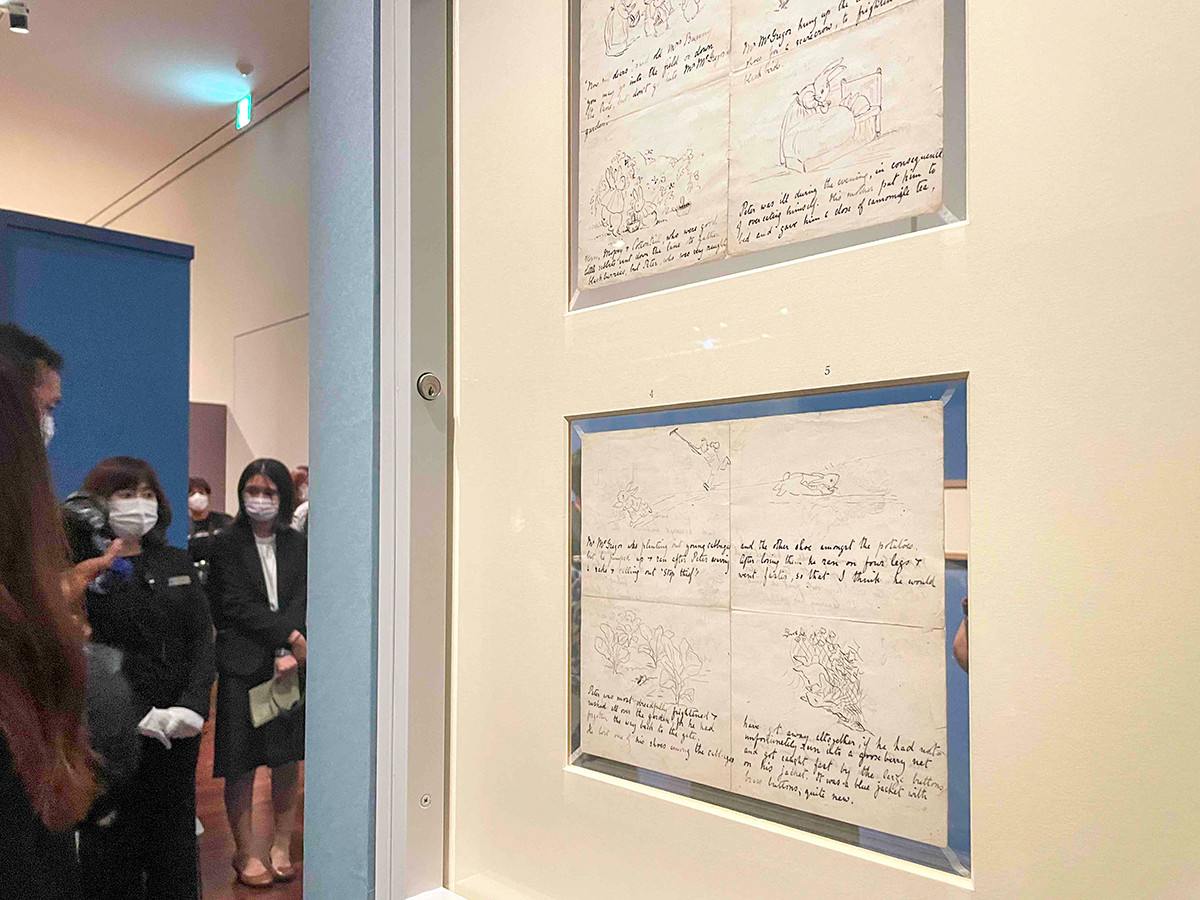 "Now my dears" said old Mrs Bunny
"you may go into the field or down
the lane, but don't go into Mr McGregor's
garden."
Mr McGregor hung up the
shoes for a scarecrow, to frighten
blackbirds.
Flopsy, Mopsy & Cottontail who were good
little rabbits went down the lane to gather
blackberries, but Peter, who was very naughty
Peter was ill during the evening, in consequence
of overeating himself. His mother put him to
bed and gave him a dose of camomile tea,
4
5
Mr McGregor was planting out young cabbages
but he jumped up & ran after Peter waving
a rake & calling out 'Stop thief'!
and the other shoe amongst the potatoes.
After losing them he ran on four legs &
went faster, so that I think he would
Peter was most dreadfully frightened &
rushed all over the garden for he had
forgotten the way back to the gate.
He lost one of his shoes among the cabbages
have got away altogether, if he had not
unfortunately run into a gooseberry net
and got caught fast by the large buttons
on his jacket. It was a blue jacket with
brass buttons, quite new.